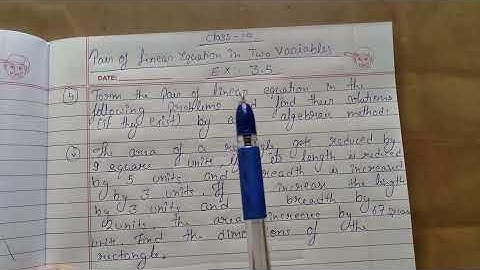 Class-10
Pair of linear equation in Two Variables
DATE: EX. 3.5
4) Form the Pair of linear equation in the
following Problems and find their solutions
(if they exist) by algebraic method:
v) The area of a rectangle gets reduced by
9 square units, if its length is reduced
by 5 units and breadth is increased
by 3 units. If increase the length
by 3 units and breadth by
2units the area increces by 67 square
unit. Find the dimensions of the
rectangle.